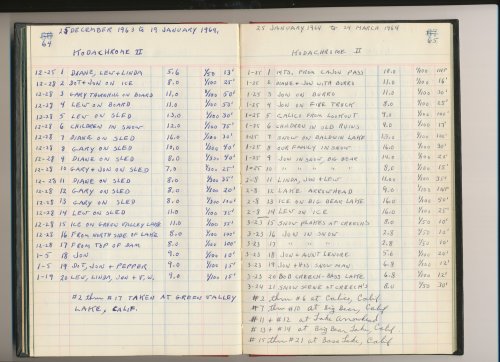 64
25 DECEMBER 1963 to 19 JANUARY 1964,
KODACHROME II
12-25 1 DIANE, LEW & LINDA 5.6 1/50 13'
12-28 2 DOT & JON ON ICE 8.0 1/100 25'
12-28 3 GARY THROWING ON BOARD 11.0 1/100 50'
12-28 4 LEW ON BOARD 11.0 1/100 50'
12-28 5 LEW ON SLED 13.0 1/100 30'
12-28 6 CHILDREN IN SNOW 12.0 1/100 35'
12-28 7 DIANE ON SLED 16.0 1/100 30'
12-28 8 GARY ON SLED 10.0 1/100 40'
12-28 9 DIANE ON SLED 8.0 1/100 40'
12-28 10 GARY & JON ON SLED 7.0 1/100 25'
12-28 11 DIANE ON SLED 8.0 1/100 35'
12-28 12 GARY ON SLED 8.0 1/100 20'
12-28 13 GARY ON SLED 8.0 1/100
12-28 14 LEW ON SLED 11.0 1/100 35'
12-28 15 ICE ON GREEN VALLEY LAKE 11.0 1/100 55'
12-28 16 FROM NORTH SIDE OF LAKE 8.0 1/100 100'
12-28 17 FROM TOP OF DAM 8.0 1/100 100'
1-5 18 JON 9.0 1/100 10'
1-5 19 DOT, JON & PEPPER 9.0 1/100 15'
1-19 20 LEW, LINDA, JON & 9.0 1/100 15'
#2 thru #17 TAKEN AT GREEN VALLEY
LAKE, CALIF.
65
25 JANUARY 1964 to 24 MARCH 1964
KODACHROME II
1-25 1 MTS. FROM CAJON PASS 10.0 1/100 INF
1-25 2 DIANE & JON WITH BURRO 11.0 1/100
1-25 3 JON ON BURRO 11.0 1/100 30'
1-25 4 JON ON FIRE TRUCK 8.0 1/100 25'
1-25 5 CALICO FROM LOOKOUT 9.0 1/100
1-25 6 CHILDREN IN OLD RUINS 8.0 1/100 15'
1-25 7 SNOW ON BALDWIN LAKE 13.0 1/100
1-25 8 OUR FAMILY IN SNOW 16.0 1/100 30'
1-25 9 JON IN SNOW, BIG BEAR 14.0 1/100 25'
1-25 10 " " " " " 8.0 1/100 15'
2-8 11 LINDA, JON & LEW 11.0 1/100 35'
2-8 12 LAKE ARROWHEAD 9.0 1/100 INF
2-8 13 ICE ON BIG BEAR LAKE 16.0 1/100
2-8 14 LEW ON ICE 16.0 1/100 25'
3-23 15 SNOW FLAKES AT CREECH'S 8.0 1/50
3-23 16 JON IN SNOW 2.8 1/50 12'
3-23 17 " " " 2.8 1/50 10'
3-23 18 JON & AUNT LENORE 5.6 1/100 20'
3-23 19 JON & HIS SNOW MAN 6.8 1/100 12'
3-23 20 BOB CREECH - BASS LAKE 6.8 1/100 12'
3-24 21 SNOW SCENE AT CREECH'S 8.0 1/50 30'
#2 thru #6 at Calico, Calif
#7 thru #10 at Big Bear, Calif
#11 + #12 at Lake Arrowhead
#13 + #14 at Big Bear Lake, Calif
#15 thru #21 at Bass Lake, Calif